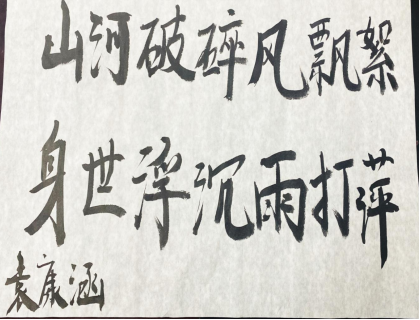 山河破碎风飘絮
身世浮沉雨打萍
袁康涵